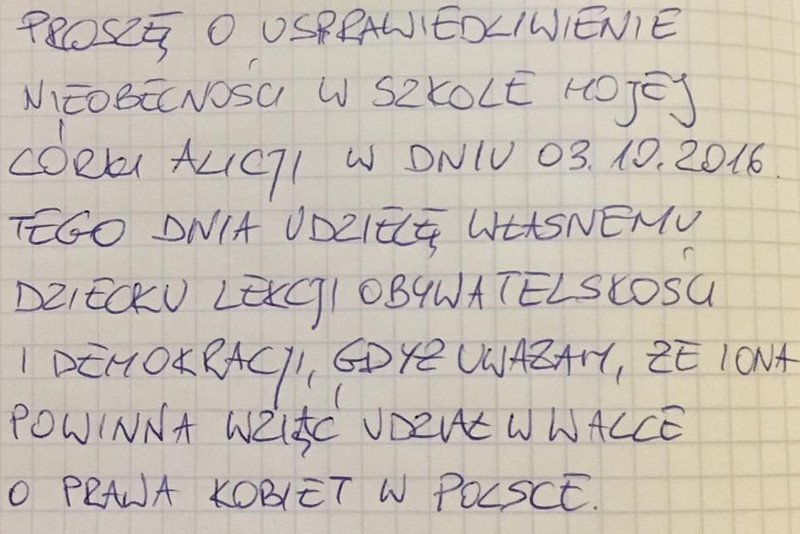 PROSZĘ O USPRAWIEDLIWIENIE
NIEOBECNOŚCI W SZKOLE MOJEJ
CÓRKI ALICJI W DNIU 03.10.2016.
TEGO DNIA UDZIELĘ WŁASNEMU
DZIECKU LEKCJI OBYWATELSKOŚCI
I DEMOKRACJI, GDYŻ UWAŻAM, ŻE I ONA
POWINNA WZIĄĆ UDZIAŁ W WALCE
O PRAWA KOBIET W POLSCE.